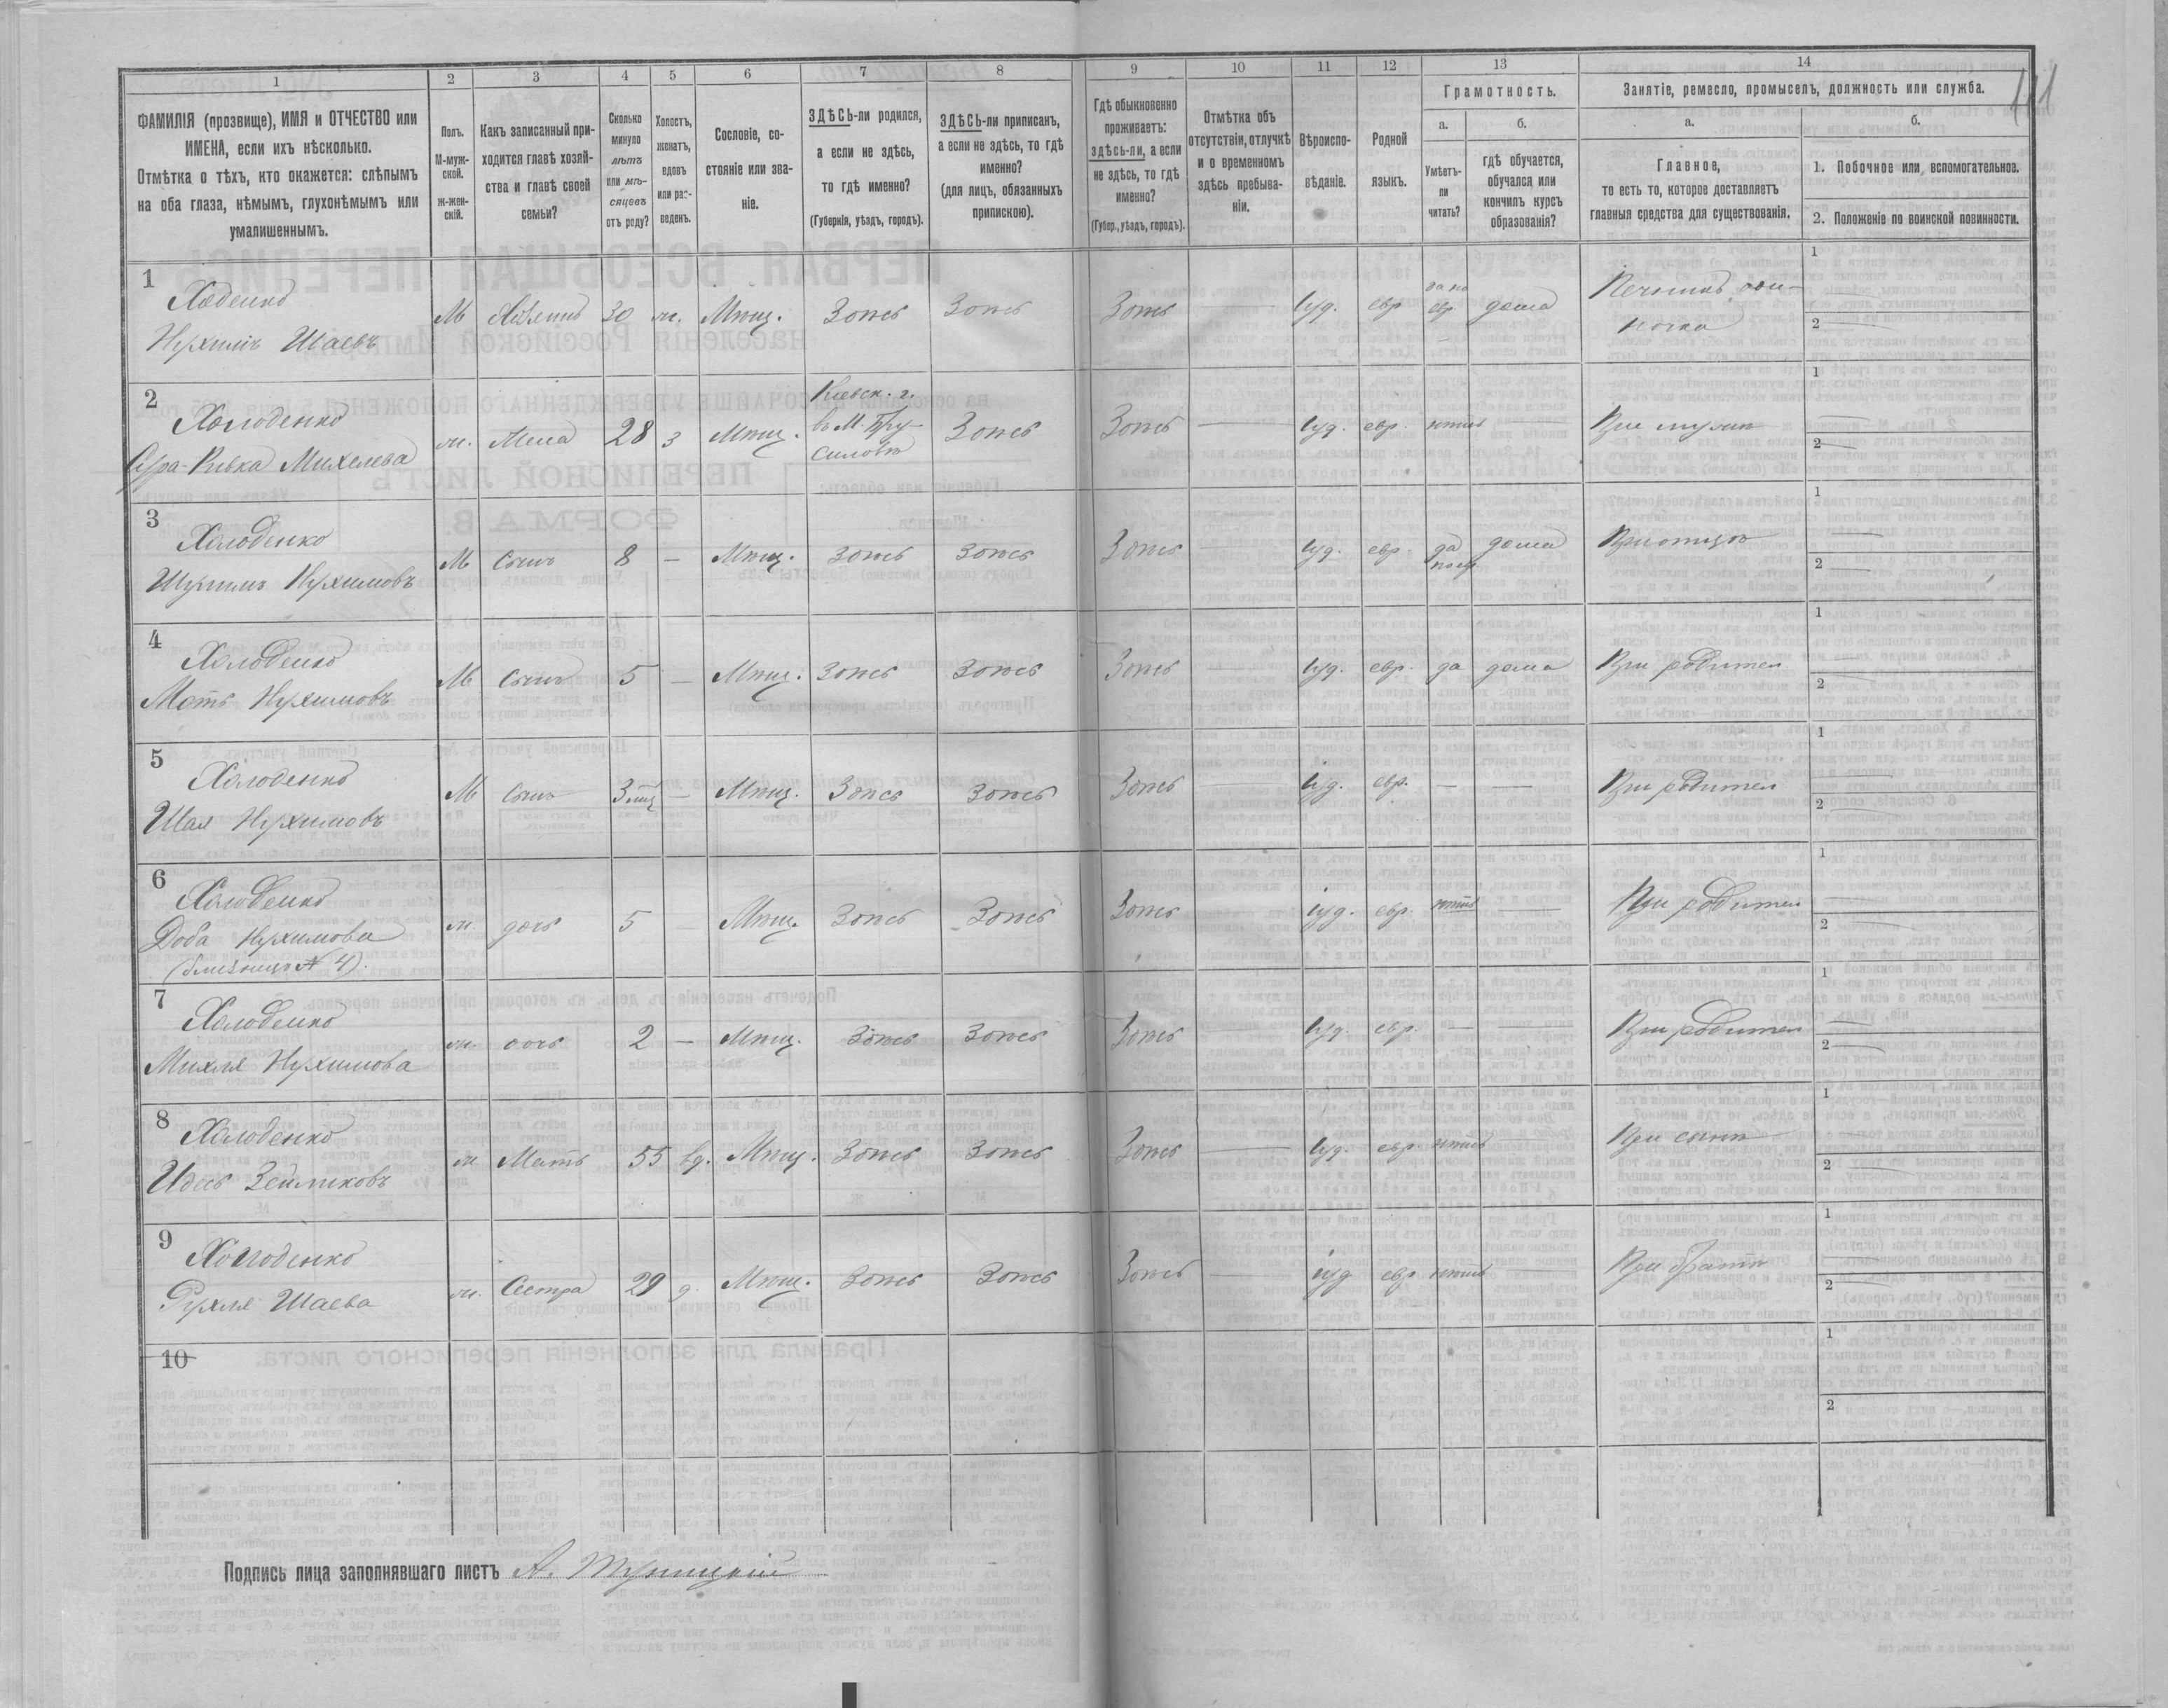 1 2 3 4 5 6 7 8 9 10 11 12 13 14
ФАМИЛІЯ (прозвище), ИМЯ и ОТЧЕСТВО или
ИМЕНА, если ихъ нѣсколько.
Отмѣтка о тѣхъ, кто окажется: слѣпымъ
на оба глаза, нѣмымъ, глухонѣмымъ или
умалишеннымъ.
Полъ.
М-муж-
ской.
Ж-жен-
скій.
Какъ записанный при-
ходится главѣ хозяй-
ства и главѣ своей
семьи?
Сколько
минуло
лѣтъ
или мѣ-
сяцевъ
отъ роду?
Холостъ,
женатъ,
вдовъ
или раз-
веденъ.
Сословіе, со-
стояніе или зва-
ніе.
ЗДѢСЬ-ли родился,
а если не здѣсь,
то гдѣ именно?
(Губернія, уѣздъ, городъ).
ЗДѢСЬ-ли приписанъ,
а если не здѣсь, то гдѣ
именно?
(для лицъ, обязанныхъ
припискою).
Гдѣ обыкновенно
проживаетъ:
здѣсь-ли, а если
не здѣсь, то гдѣ
именно?
(Губер., уѣздъ, городъ).
Отмѣтка объ
отсутствіи, отлучкѣ
и о временномъ
здѣсь пребыва-
ніи.
Вѣроиспо-
вѣданіе.
Родной
языкъ.
Грамотность.
а.
Умѣетъ-
ли
читать?
б.
гдѣ обучается,
обучался или
кончилъ курсъ
образованія?
Занятіе, ремесло, промыселъ, должность или служба.
а.
Главное,
то есть то, которое доставляетъ
главныя средства для существованія.
б.
1. Побочное или вспомогательное.
2. Положеніе по воинской повинности.
1
Нухимъ Шаевъ
М Хозяинъ 30 ж. Мѣщ. Здѣсь Здѣсь Здѣсь — Іуд. евр. да по евр. дома
1
2
2
Холоденко
Сура-Ривка Михелева
ж. Жена 28 з Мѣщ. Кіевск. г.
въ М. Бру-
силовѣ
Здѣсь Здѣсь — Іуд. евр. нѣтъ При мужѣ
1
2
3
Холоденко
Нухимовъ
М Сынъ 8 — Мѣщ. Здѣсь Здѣсь Здѣсь — Іуд. евр. да по евр. дома При отцѣ
1
2
4
Холоденко
Нухимовъ
М Сынъ 5 — Мѣщ. Здѣсь Здѣсь Здѣсь — Іуд. евр. да дома При родител
1
2
5
Холоденко
Шая Нухимовъ
М Сынъ 3 мѣс — Мѣщ. Здѣсь Здѣсь Здѣсь — Іуд. евр. — — При родител
1
2
6
Холоденко
Доба Нухимова
(близнецъ № 4).
ж. дочь 5 — Мѣщ. Здѣсь Здѣсь Здѣсь іуд. евр. нѣтъ — При родител
1
2
7
Холоденко
Михля Нухимова
ж. дочь 2 — Мѣщ. Здѣсь Здѣсь Здѣсь Іуд. евр. — — При родител
1
2
8
Холоденко
ж Мать 55 вд. Мѣщ. Здѣсь Здѣсь Здѣсь — Іуд. евр. нѣтъ При сынѣ
1
2
9
Холоденко
Рухля Шаева
ж. Сестра 29 д. Мѣщ. Здѣсь Здѣсь Здѣсь — іуд евр нѣтъ При братѣ
1
2
10
1
2
Подпись лица заполнявшаго листъ А.